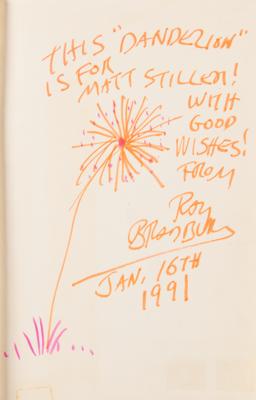 THIS "DANDELION"
IS FOR
MATT STILLER!
WITH
GOOD
WISHES!
FROM
RAY
BRADBURY
JAN, 16TH
1991